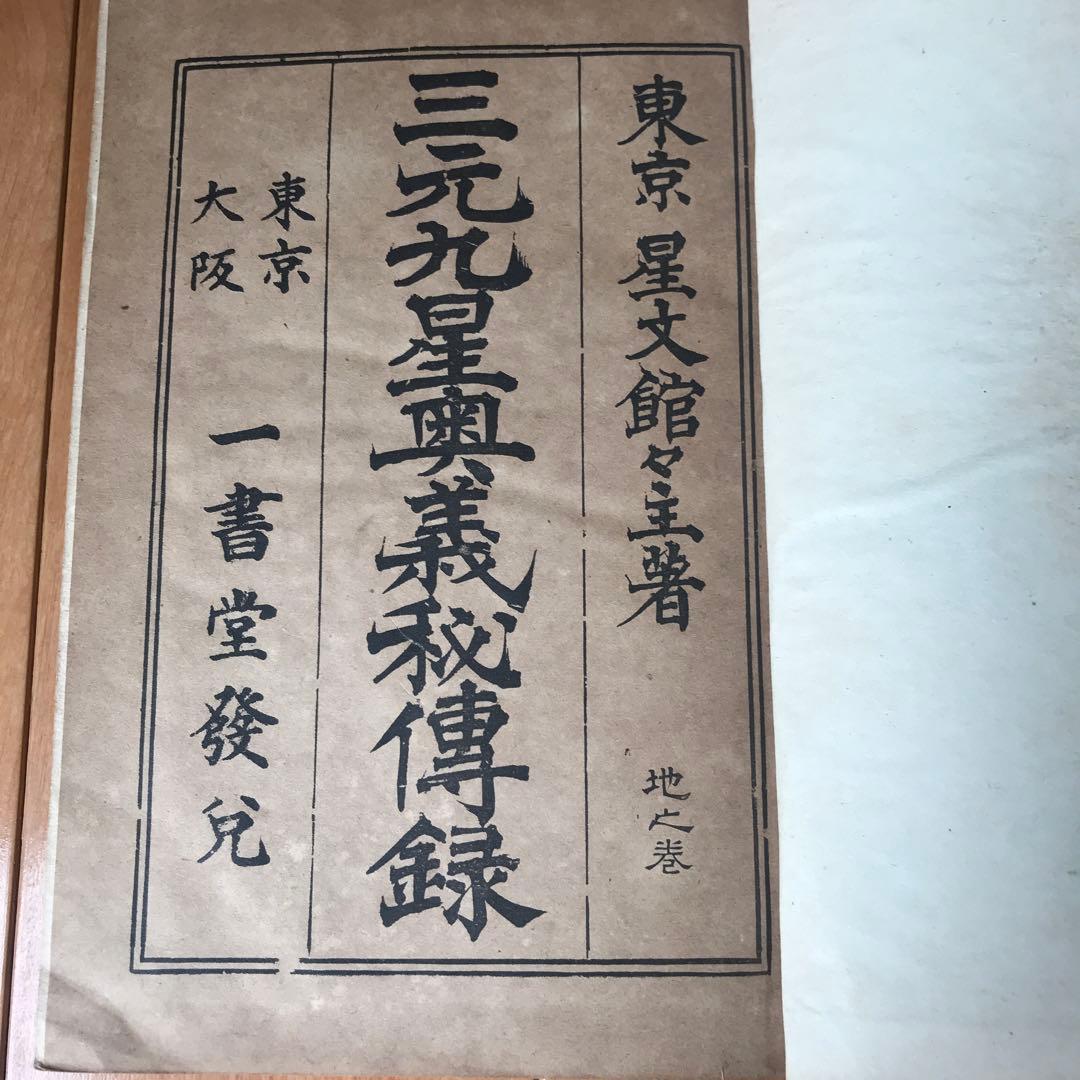 東京 星文館々主著
地之巻
三元九星奥義秘傳録
東京
大阪
一書堂發兌